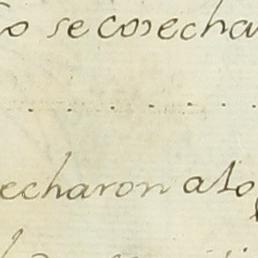 to se cosecha
echaron a to